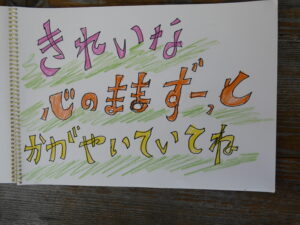 きれいな
心のままずーっと
かがやいていてね